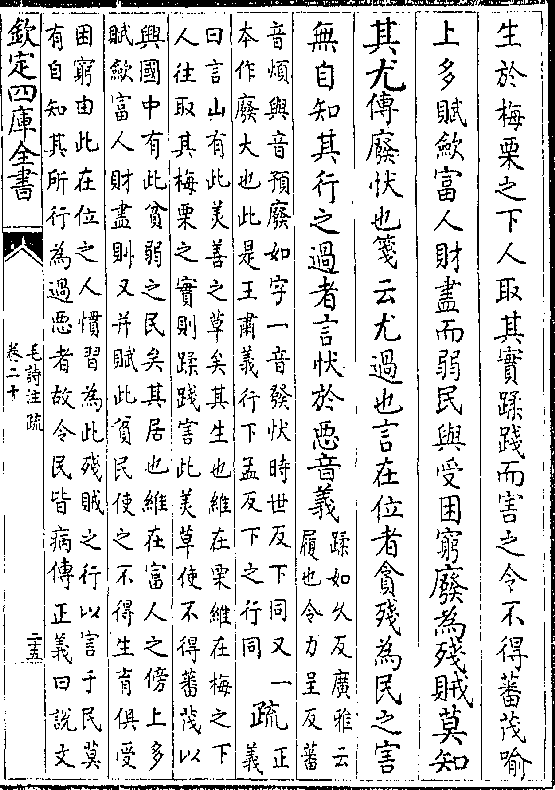 生於梅栗之下人取其實蹂踐而害之令不得蕃茂喻
上多賦歛富人財盡而弱民與受困窮廢為殘賊莫知
其尤傳廢忕也箋云尤過也言在位者貪殘為民之害
無自知其行之過者言忕於惡音義
蹂如久反廣雅云
履也令力呈反蕃
音煩與音預廢如字一音發忕時世反下同又一
本作廢大也此是王肅義行下孟反下之行同
疏
正
義
曰言山有此美善之草矣其生也維在栗維在梅之下
人往取其梅栗之實則蹂踐害此美草使不得蕃茂以
興國中有此貧弱之民矣其居也維在富人之傍上多
賦歛富人財盡則又并賦此貧民使之不得生育俱受
困窮由此在位之人慣習為此殘賊之行以害于民莫
有自知其所行為過惡者故令民皆病傳正義曰說文
欽定四庫全書
毛詩注疏
卷二十
二五